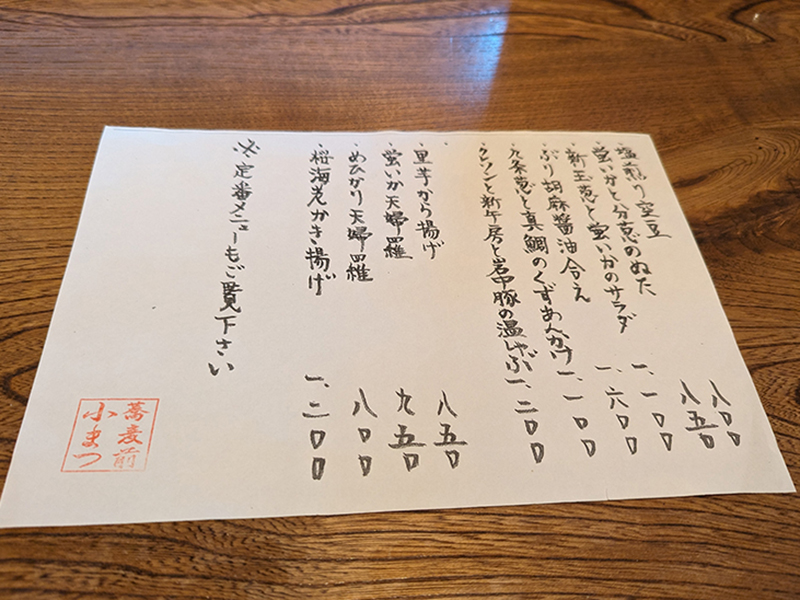 ・塩煎り空豆 八〇〇
・蛍いかと分葱のぬた 八五〇
・新玉葱と蛍いかのサラダ 一、一〇〇
・ぶり胡麻醤油合え 一、六〇〇
・九条葱と真鯛のくずあんかけ 一、一〇〇
・クレソンと新牛房と岩中豚の温しゃぶ 一、二〇〇
・里芋から揚げ 八五〇
・蛍いか天婦羅 九五〇
・めひかり天婦羅 八〇〇
・桜海老かき揚げ 一、二〇〇
※定番メニューもご覧下さい
蕎麦前
小まつ